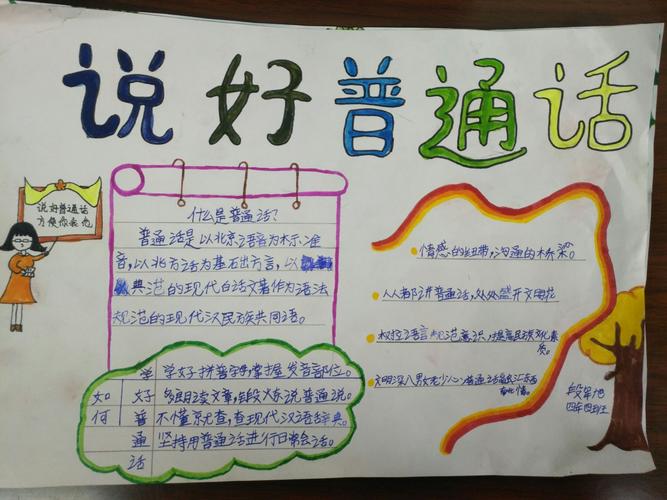 说好普通话
说好普通话
方便你我他
什么是普通话?
普通话是以北京语音为标准
音,以北方话为基石出方言,以
典范的现代白话文著作为语法
规范的现代汉民族共同语。
如何
学好普通话
学好拼音字母掌握发音部位。
多朗读文章,锻炼说普通说。
不懂就查,查现代汉语辞典。
坚持用普通话进行日常会话。
情感的纽带,沟通的桥梁。
人人都讲普通话,处处盛开文明花
树立语言规范意识,提高民族文化素
质。
文明深入男女老少心
普通话
东西
南北情。
四年四班